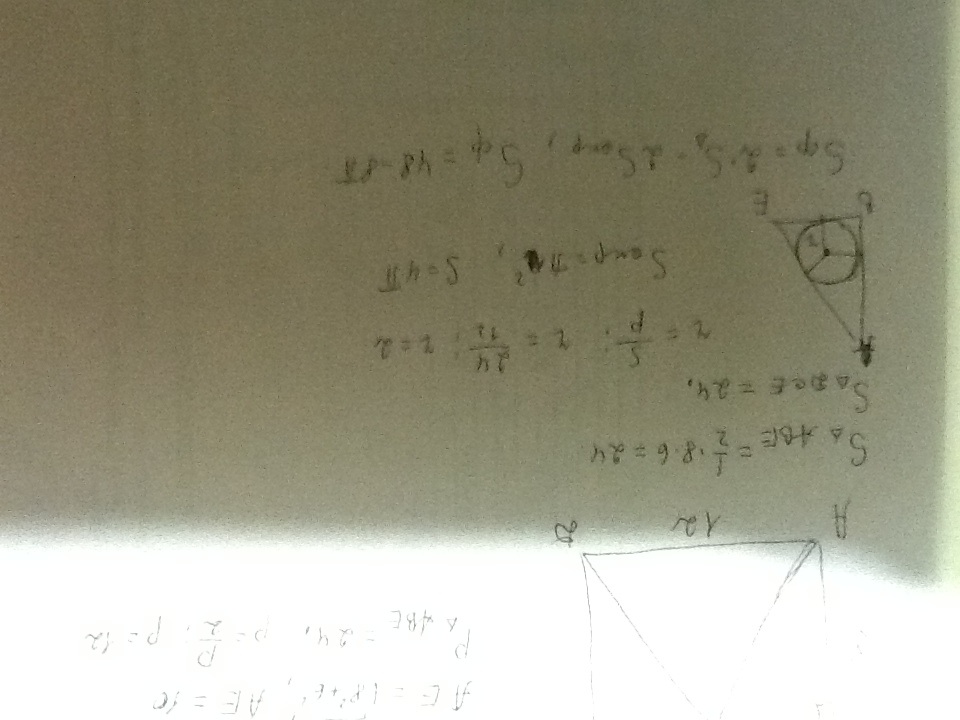 AE = √8²+6², AE = 10
P△ABE = 24, p = P/2; p = 12
A 12 D
S△ABE = 1/2 · 8 · 6 = 24
S△DCE = 24,
r = S/p; r = 24/12; r = 2
Sокр = πr², S = 4π
B E
Sф = 2·S△ - 2Sокр, Sф = 48 - 8π